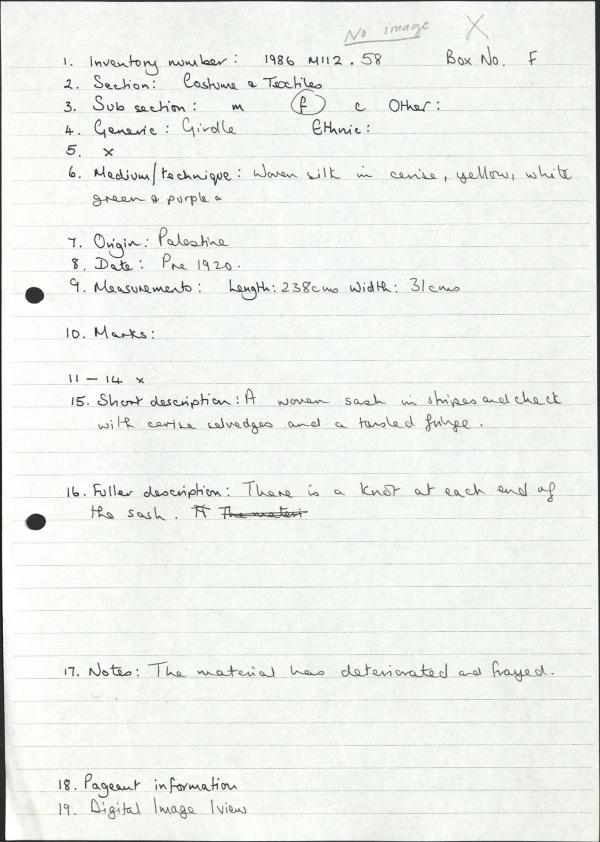 No image X
1. Inventory number: 1986 M112.58 Box No. F
2. Section: Costume & Textiles
3. Sub section: m f c Other:
4. Generic: Girdle Ethnic:
5. x
6. Medium/technique: Woven silk in cerise, yellow, white
green & purple a
7. Origin: Palestine
8. Date: Pre 1920.
9. Measurements: Length: 238cms Width: 31cms
10. Marks:
11 - 14 x
15. Short description: A woven sash in stripes and check
with cerise selvedges and a tassled fringe.
16. Fuller description: There is a knot at each end of
the sash. The materi
17. Notes: The material has deteriorated and frayed.
18. Pageant information
19. Digital Image Iview